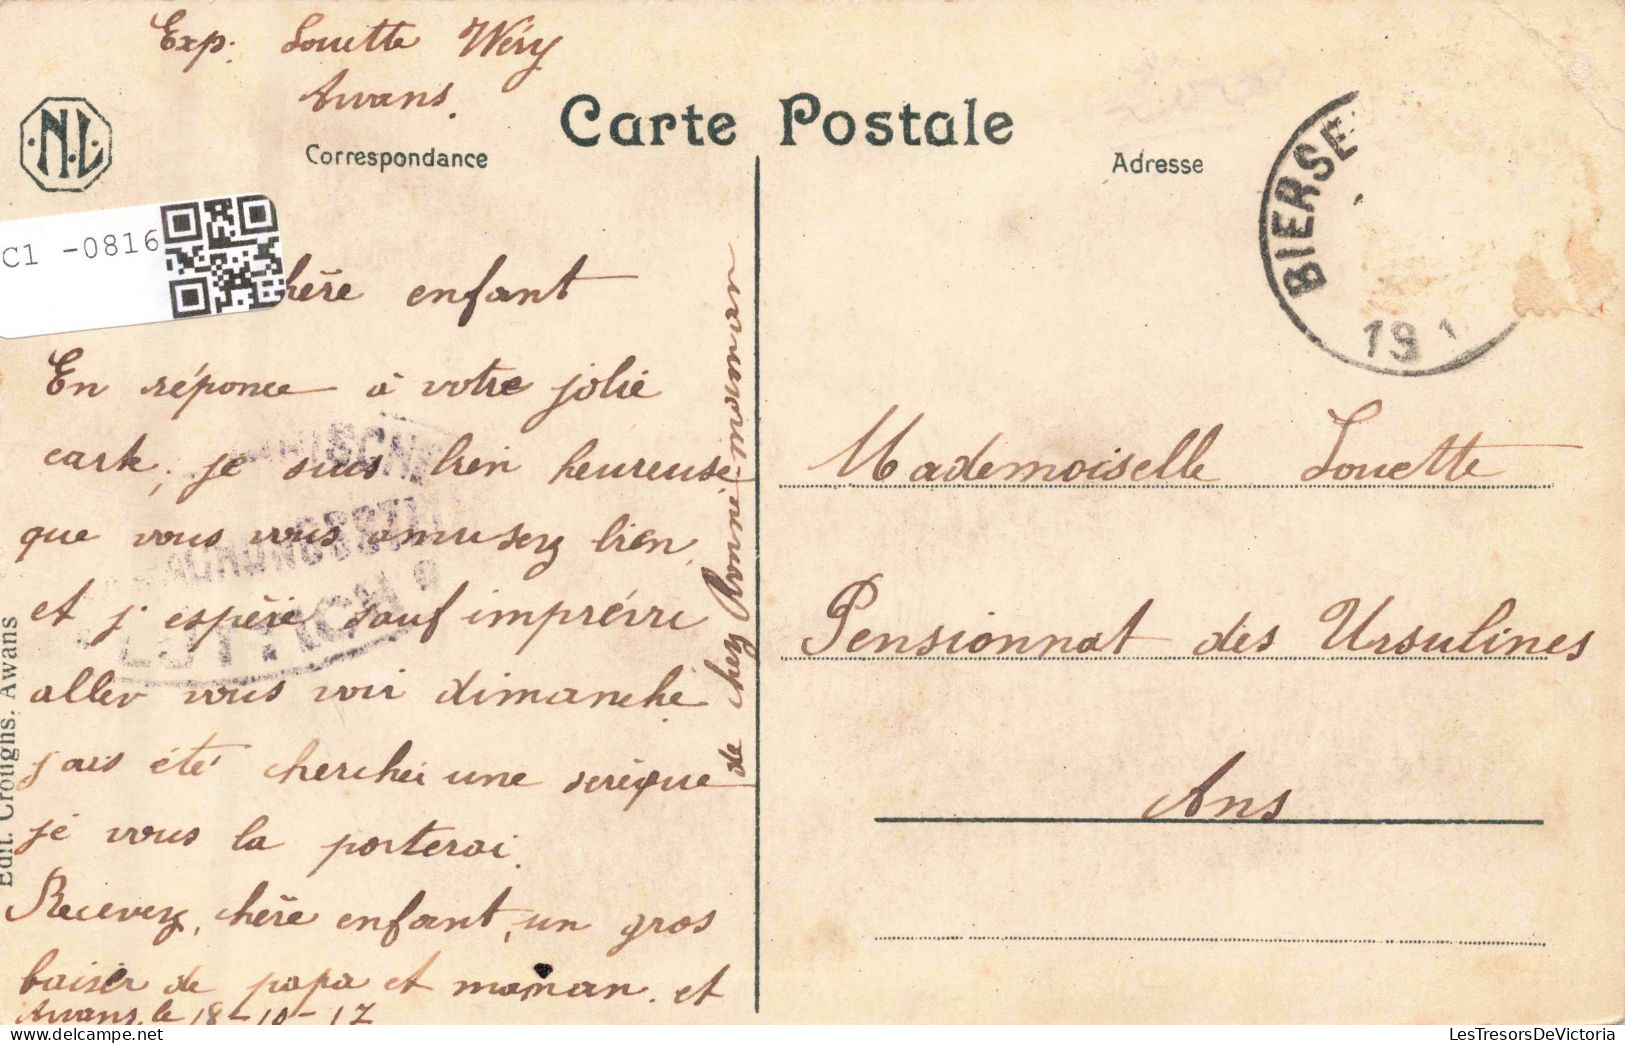 Exp. Louette Wéry
Awans.
Carte Postale
Correspondance
Adresse
N.L.
C1 -0816
BIERSE
191
chère enfant
En réponce à votre jolie
carte, je suis bien heureuse
que vous vous amusez bien
et j'espère sauf imprévu
aller vous voir dimanche
jais été chercher une
je vous la porterai.
Recevez, chère enfant, un gros
baiser de papa et maman. et
de chez Bonne-moman
Awans, le 18-10-17
LÜTTICH
Edit. Croughs, Awans
Mademoiselle Louette
Pensionnat des Ursulines
Ans
LesTresorsDeVictoria